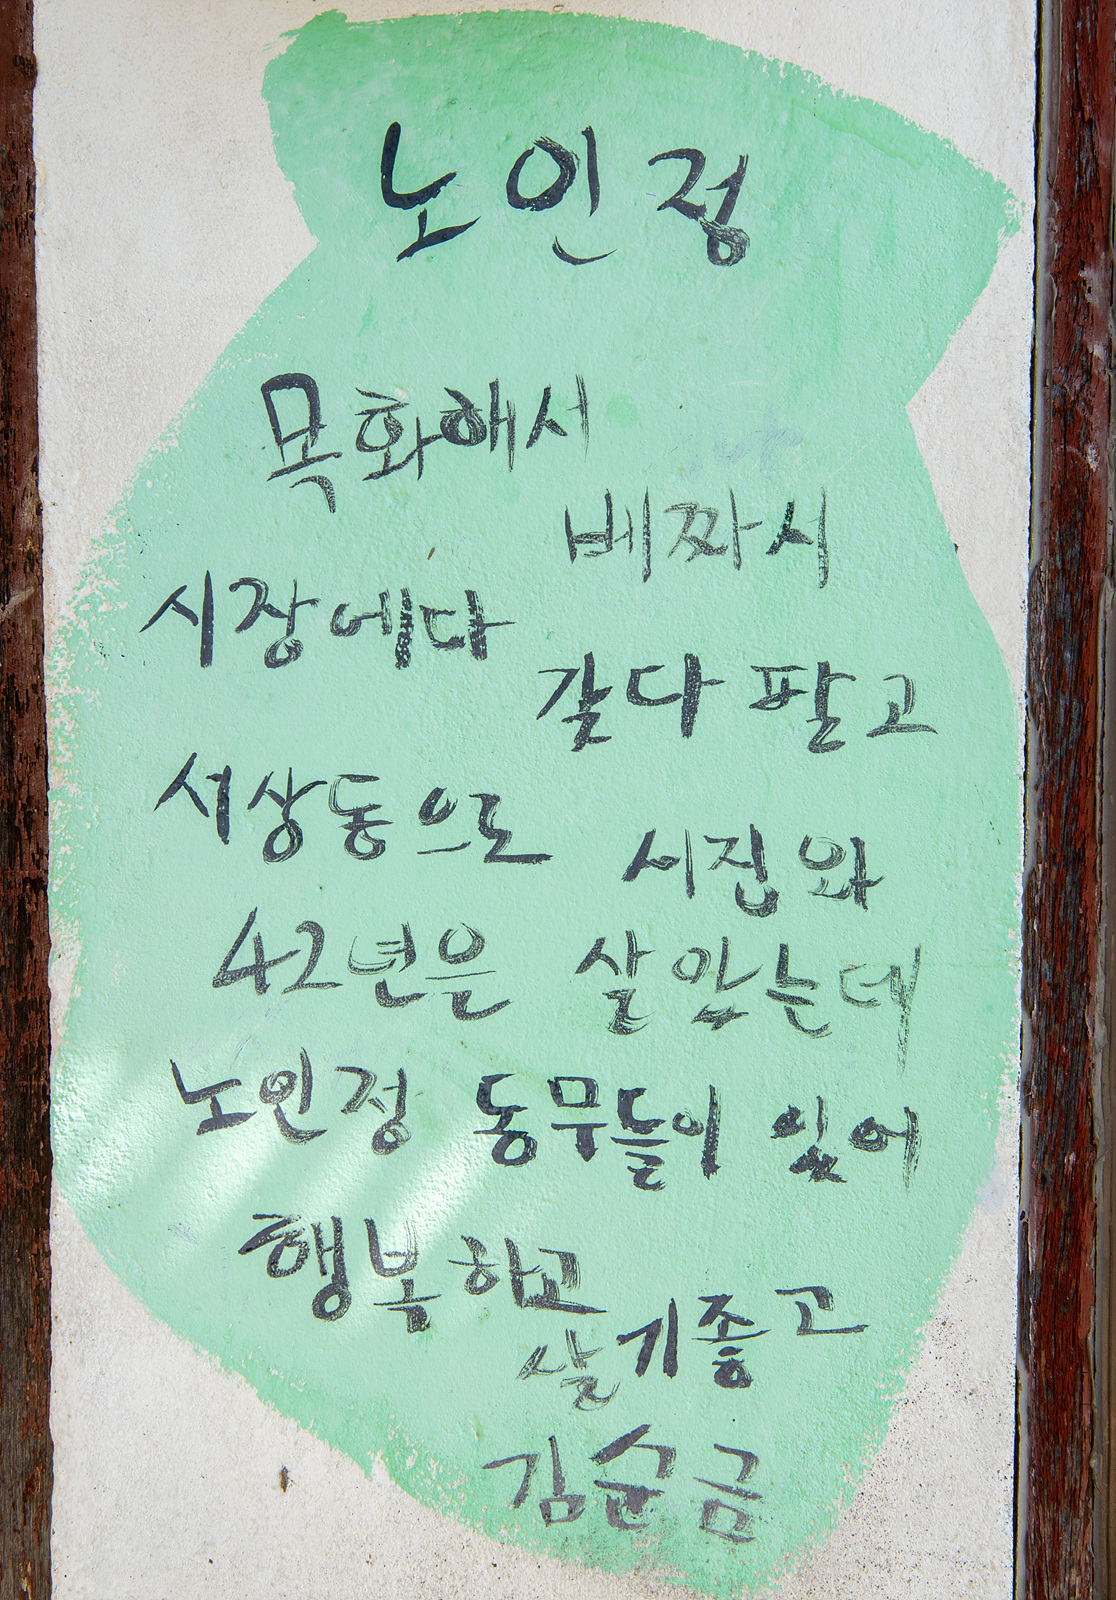 노인정
목화해서
베짜서
시장에다
갖다 팔고
서상동으로
시집와
42년은
살았는데
노인정 동무들이 있어
행복하고
살기좋고
김순금